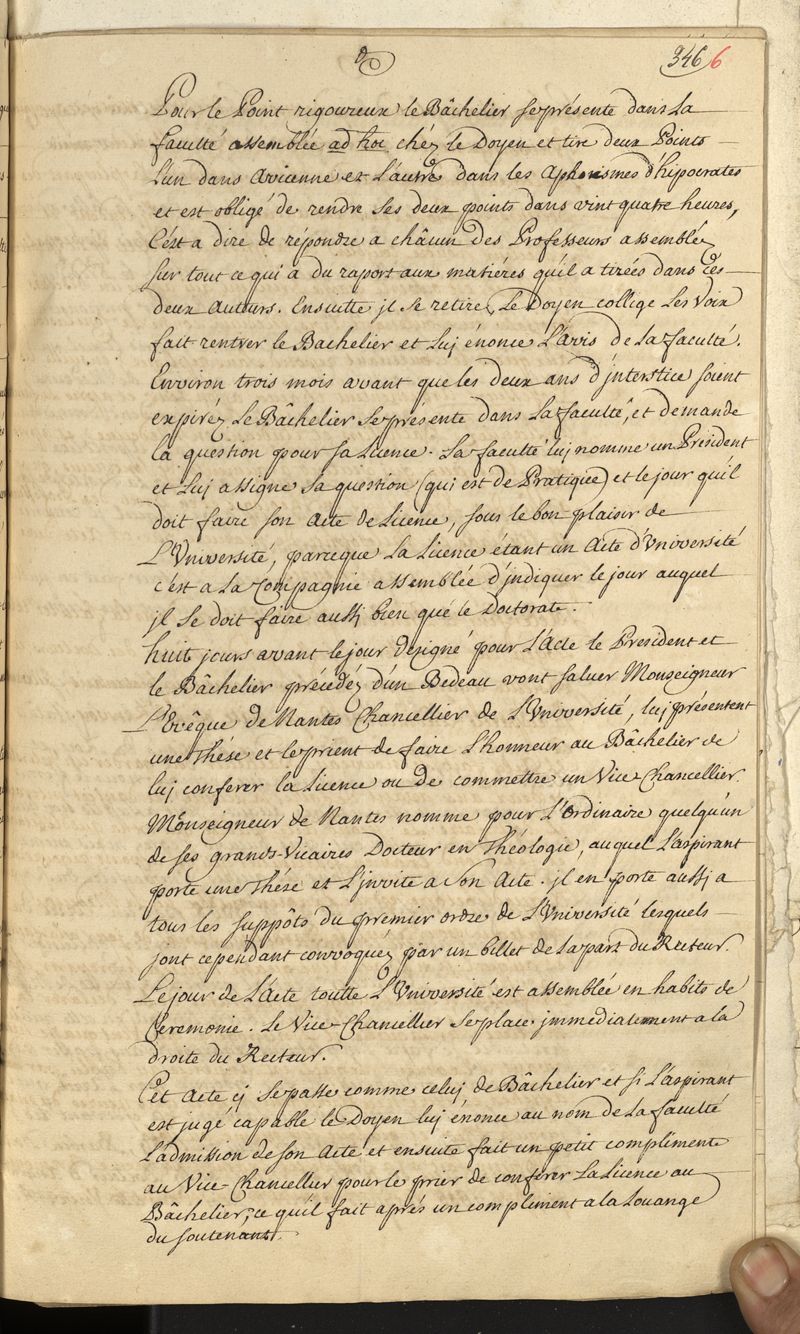 346 6
Pour le Point rigoureux le Bâchelier se présente dans la
faculté assemblée ad hoc chéz le Doyen et tire deux Points
L'un dans Avicenne et L'autre dans les Aphorismes d'hipocrates
et est obligé de rendre ses deux points dans vint quatre heures,
C'est a dire de répondre a châcun des Professeurs assembléz
sur tout ce qui a du raport aux matiéres qu'il a tirées dans ces
deux Auteurs. Ensuitte jl se retire, Le Doyen collige Les Voix
fait rentrer le Bachelier et Luj énonce L'avis de La faculté.
Environ trois mois avant que les deux ans d'jnterstice soient
expiréz Le Bâchelier se présente dans La faculté, et demande
la question pour sa Licence. La faculté luj nomme un Président
et Luj assigne sa question (qui est de Pratique) et le jour qu'il
doit faire son Acte de Licence, sous le bon plaisir de
L'Université, parceque La Licence étant un Acte d'Université
c'est a La Compagnie assemblée d'jndiquer le jour auquel
jl se doit faire aussj bien que le Doctorat.
huit jours avant le jour désigné pour L'Acte le President et
le Bâchelier précédéz d'un Bedeau vont saluer Monseigneur
L'Evêque de Nantes Chancellier de L'Université, luj présentent
une Thése et le prient de faire L'honneur au Bâchelier de
luj conferer la Licence ou de commettre un Vice-Chancellier.
Monseigneur de Nantes nomme pour L'Ordinaire quelqu'un
de ses grands-Vicaires Docteur en Théologie, auquel L'aspirant
porte une Thése et L'jnvite a son Acte. jl en porte aussj a
tous les suppôts du premier ordre de L'Université lesquels
sont cependant convoquéz par un billet de La part du Recteur.
Le jour de L'Acte toutte L'Université est assemblée en habits de
Ceremonie. Le Vice-Chancellier se place jmmediatement a la
droite du Recteur.
Cet Acte cj se passe comme celuj de Bâchelier et si L'aspirant
est jugé capable le Doyen luj énonce au nom de La faculté
L'admission de son Acte et ensuite fait un petit compliment
au Vice-Chancellier pour le prier de conférer La Licence au
Bâchelier; ce qu'il fait aprés un compliment a la Louange
du soutenant.